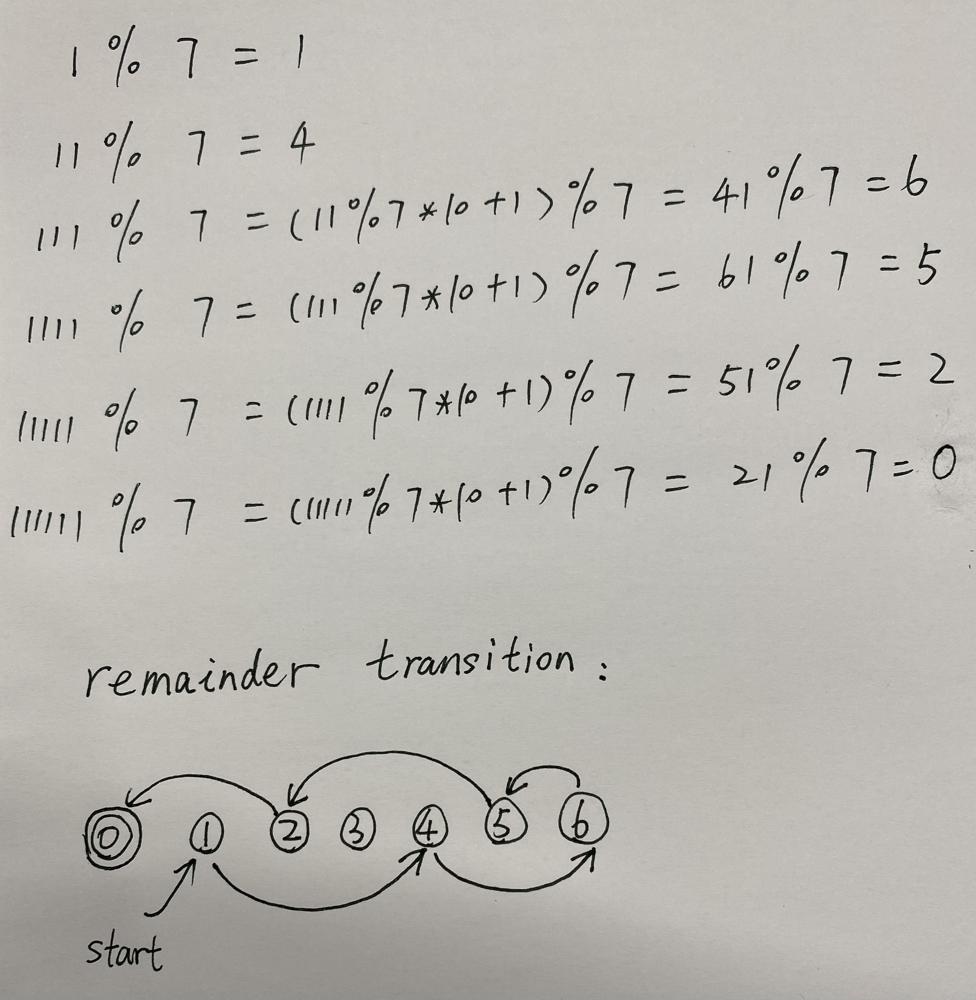 1 % 7 = 1
11 % 7 = 4
111 % 7 = (11%7*10+1)%7 = 41%7=6
1111 % 7 = (111%7*10+1)%7 = 61%7=5
11111 % 7 = (1111%7*10+1)%7 = 51%7=2
111111 % 7 = (11111%7*10+1)%7 = 21%7=0
remainder transition:
0 1 2 3 4 5 6
start